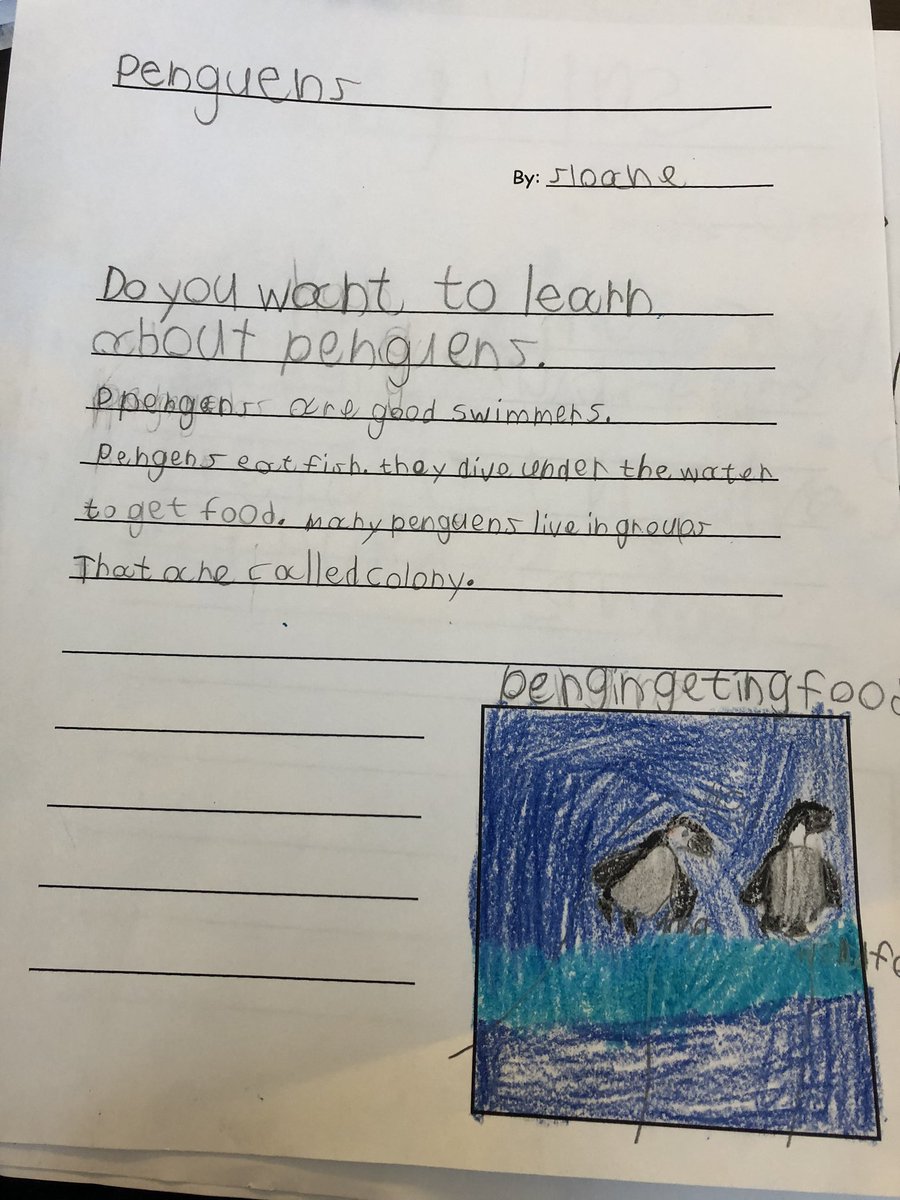 Penguens
By: sloane
Do you want to learn
about penguens.
pengens are good swimmers.
Pengens eat fish. they dive under the water
to get food. many penguens live in groups
That are called colony.
pengin geting food